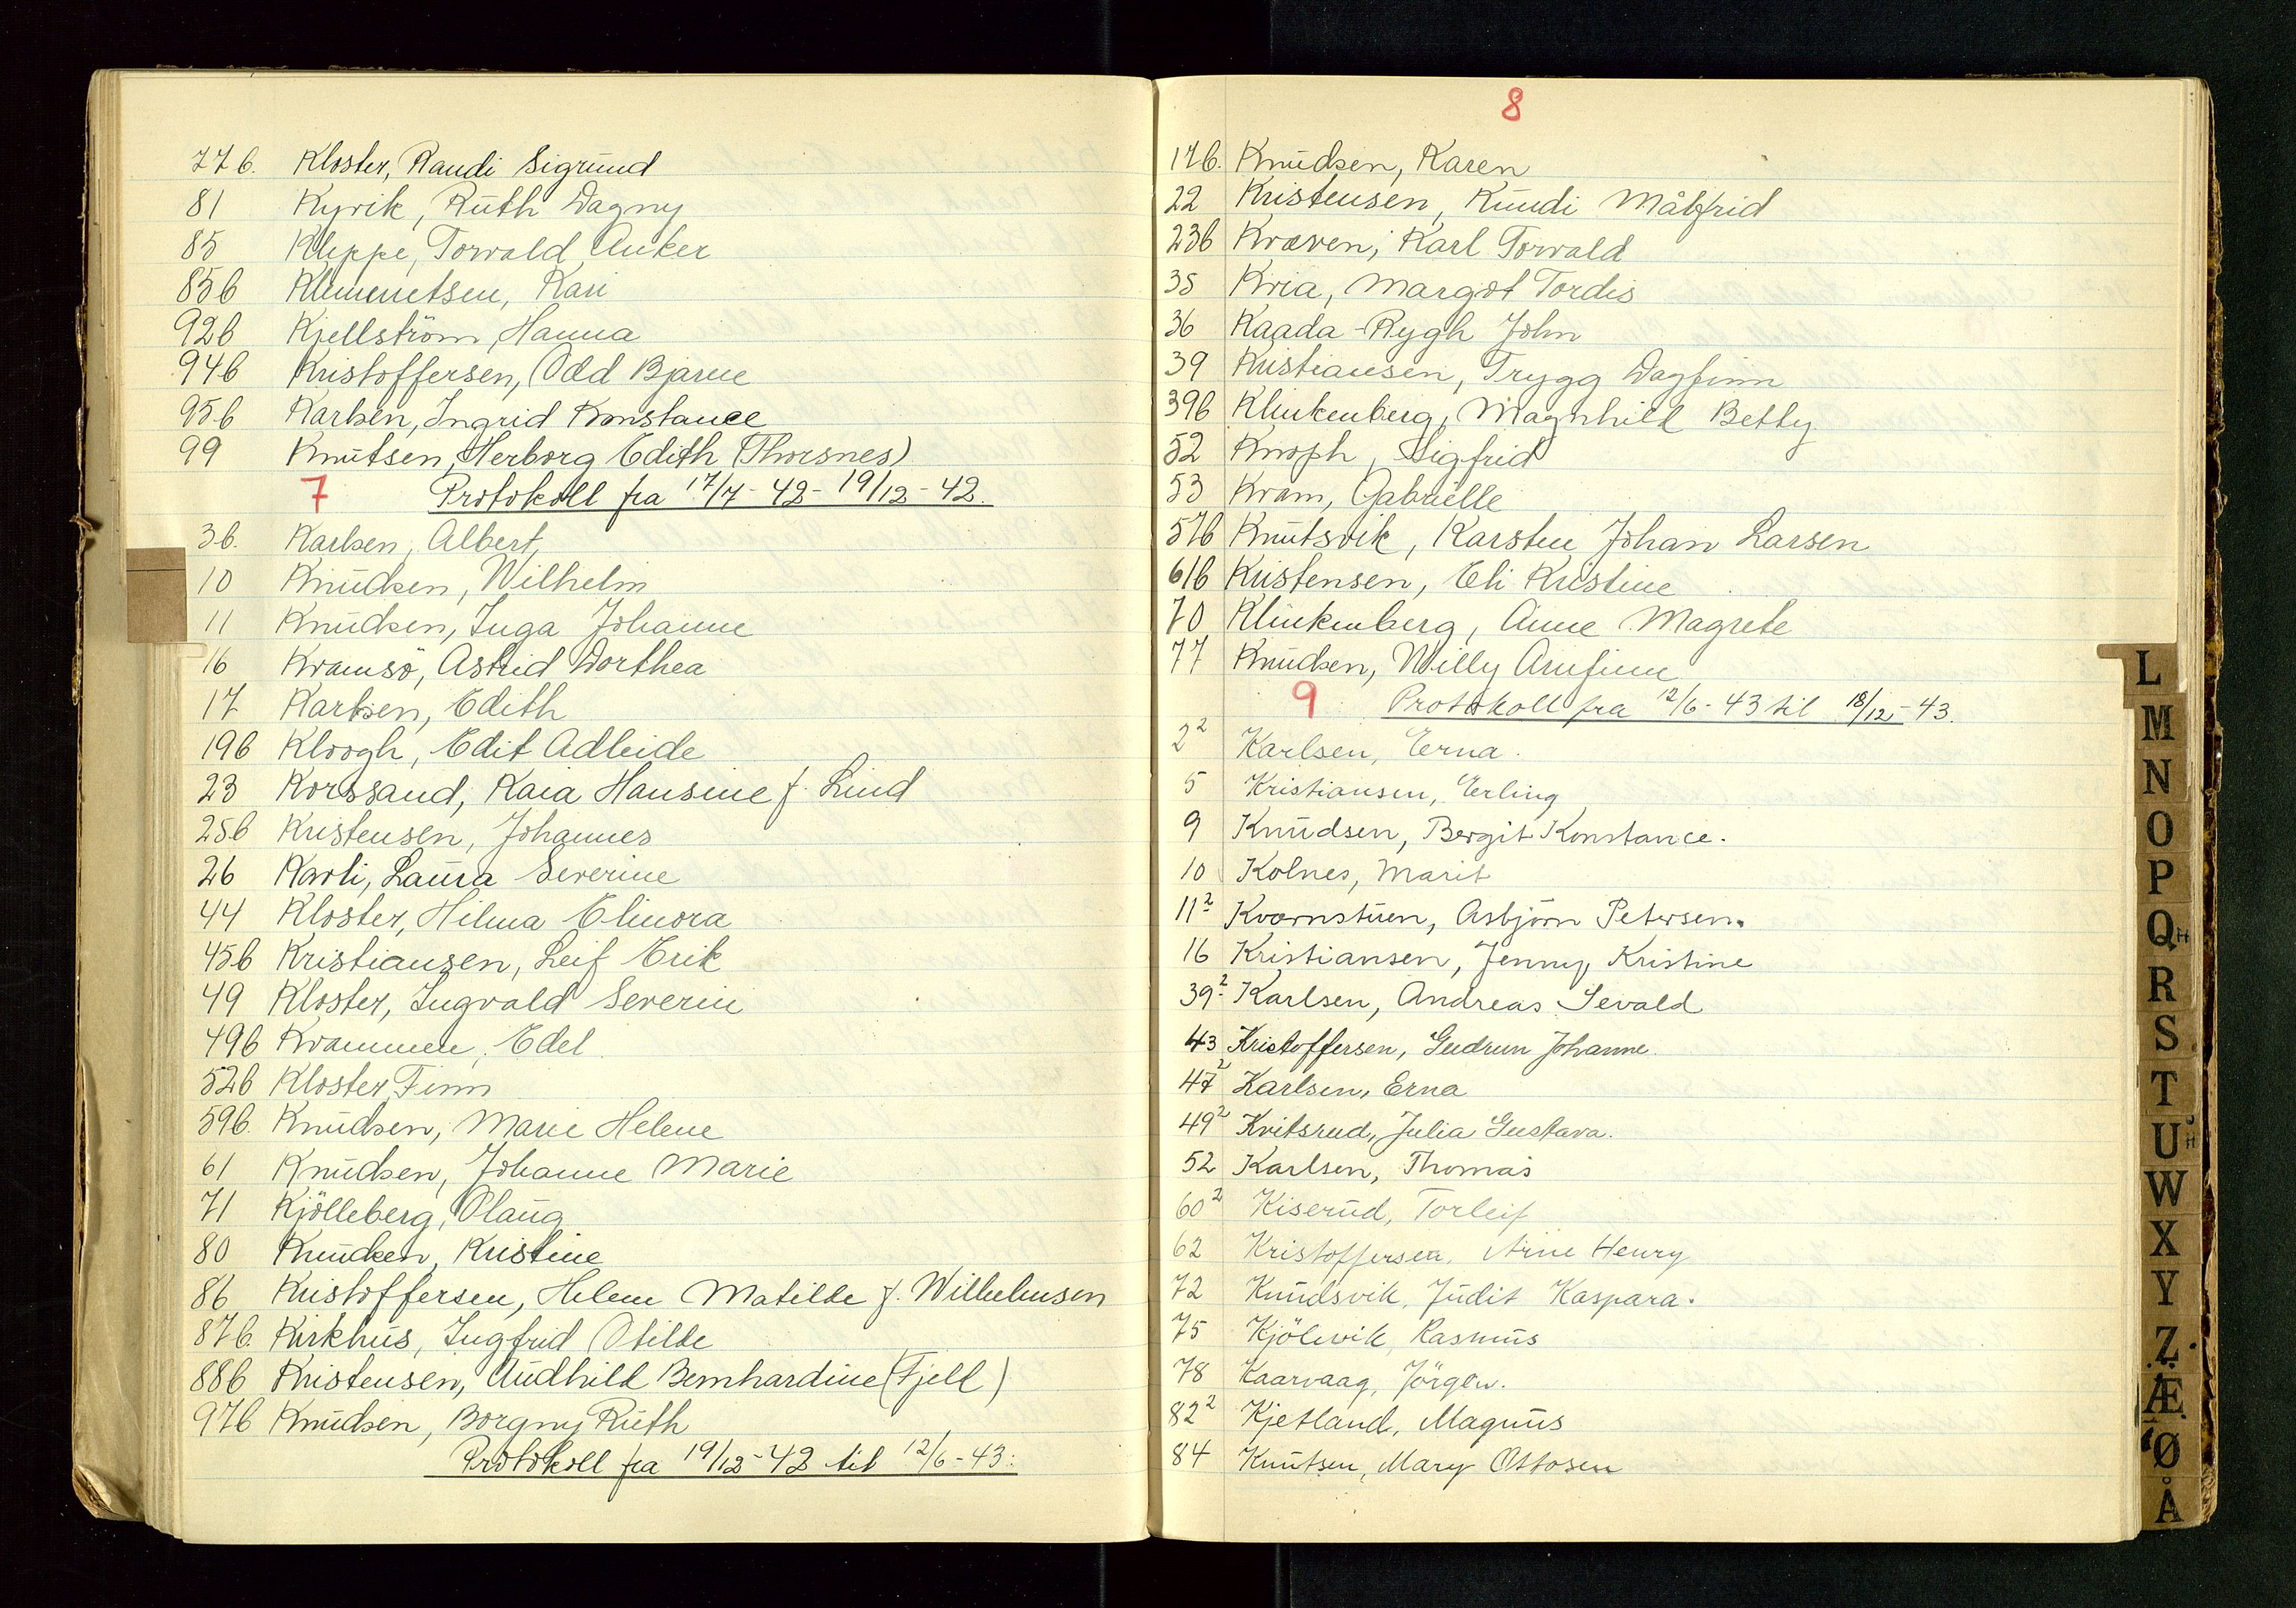 77b. Kloster, Randi Sigrund
81 Kyvik, Ruth Dagny
85 Kleppe, Torvald Anker
85b Klemmetsen, Kari
92b Kjellström, Hanna
94b Kristoffersen, Odd Bjarne
95b Karlsen, Ingrid Konstance
99 Knutsen, Herborg Edith (Thorsnes)
7 Protokoll fra 17/7-42-19/12-42.
3b. Karlsen, Albert
10 Knudsen, Wilhelm
11 Knudsen, Inga Johanne
16 Kramsö, Astrid Dorthea
17 Karlsen, Edith
19b Kloogh, Edit Adleide
23 Korssand, Kaia Hansine f. Lind
25b Kristensen, Johannes
26 Karli, Laura Severine
44 Kloster, Hilma Elinora
45b Kristiansen, Leif Erik
49 Kloster, Ingvald Severin
49b Krammen, Edel
52b Kloster, Finn
59b. Knudsen, Marie Helene
61 Knudsen, Johanne Marie
71 Kjölleberg, Olaug
80 Knudsen, Kristine
86 Kristoffersen, Helene Matilde f. Wilhelmsen
87b. Kirkhus, Ingfrid Otilde
88b Kristensen, Audhild Bernhardine (Fjell)
97b Knudsen, Borgny Ruth
Protokoll fra 19/12-42 til 12/6-43:
8
17b. Knudsen, Karen
22 Kristensen, Kundi Målfrid
23b Kvæven, Karl Torvald
35 Kvia, Margot Tordis
36 Kaada-Rygh John
39 Kristiansen, Trygg Dagfinn
39b Klinkenberg, Magnhild Betty
52 Knoph, Sigfrid
53 Kram, Gabrielle
57b Knutsvik, Karsten Johan Larsen
61b Kristensen, Eli Kristine
70 Klinkenberg, Anne Magrete
77 Knudsen, Willy Arnfinn
9 Protokoll fra 12/6-43 til 18/12-43.
2² Karlsen, Erna.
5 Kristiansen, Erling
9 Knudsen, Bergit Konstance.
10 Kolnes, Marit
11² Kvernstuen, Asbjörn Petersen.
16 Kristiansen, Jenny Kristine
39² Karlsen, Andreas Sevald
43 Kristoffersen, Gudrun Johanne.
47² Karlsen, Erna
49² Kvitsrud, Julia Gustava.
52 Karlsen, Thomas
60² Kiserud, Torleif
62 Kristoffersen, Arne Henry
72 Knudsvik, Judit Kaspara.
75 Kjölevik, Rasmus
78 Kaarvaag, Jörgen.
82² Kjetland, Magnus
84 Knutsen, Mary Ottosen
L
M
N
O
P
Q
R
S
T
U
W
X
Y
Z
Æ
Ø
Å